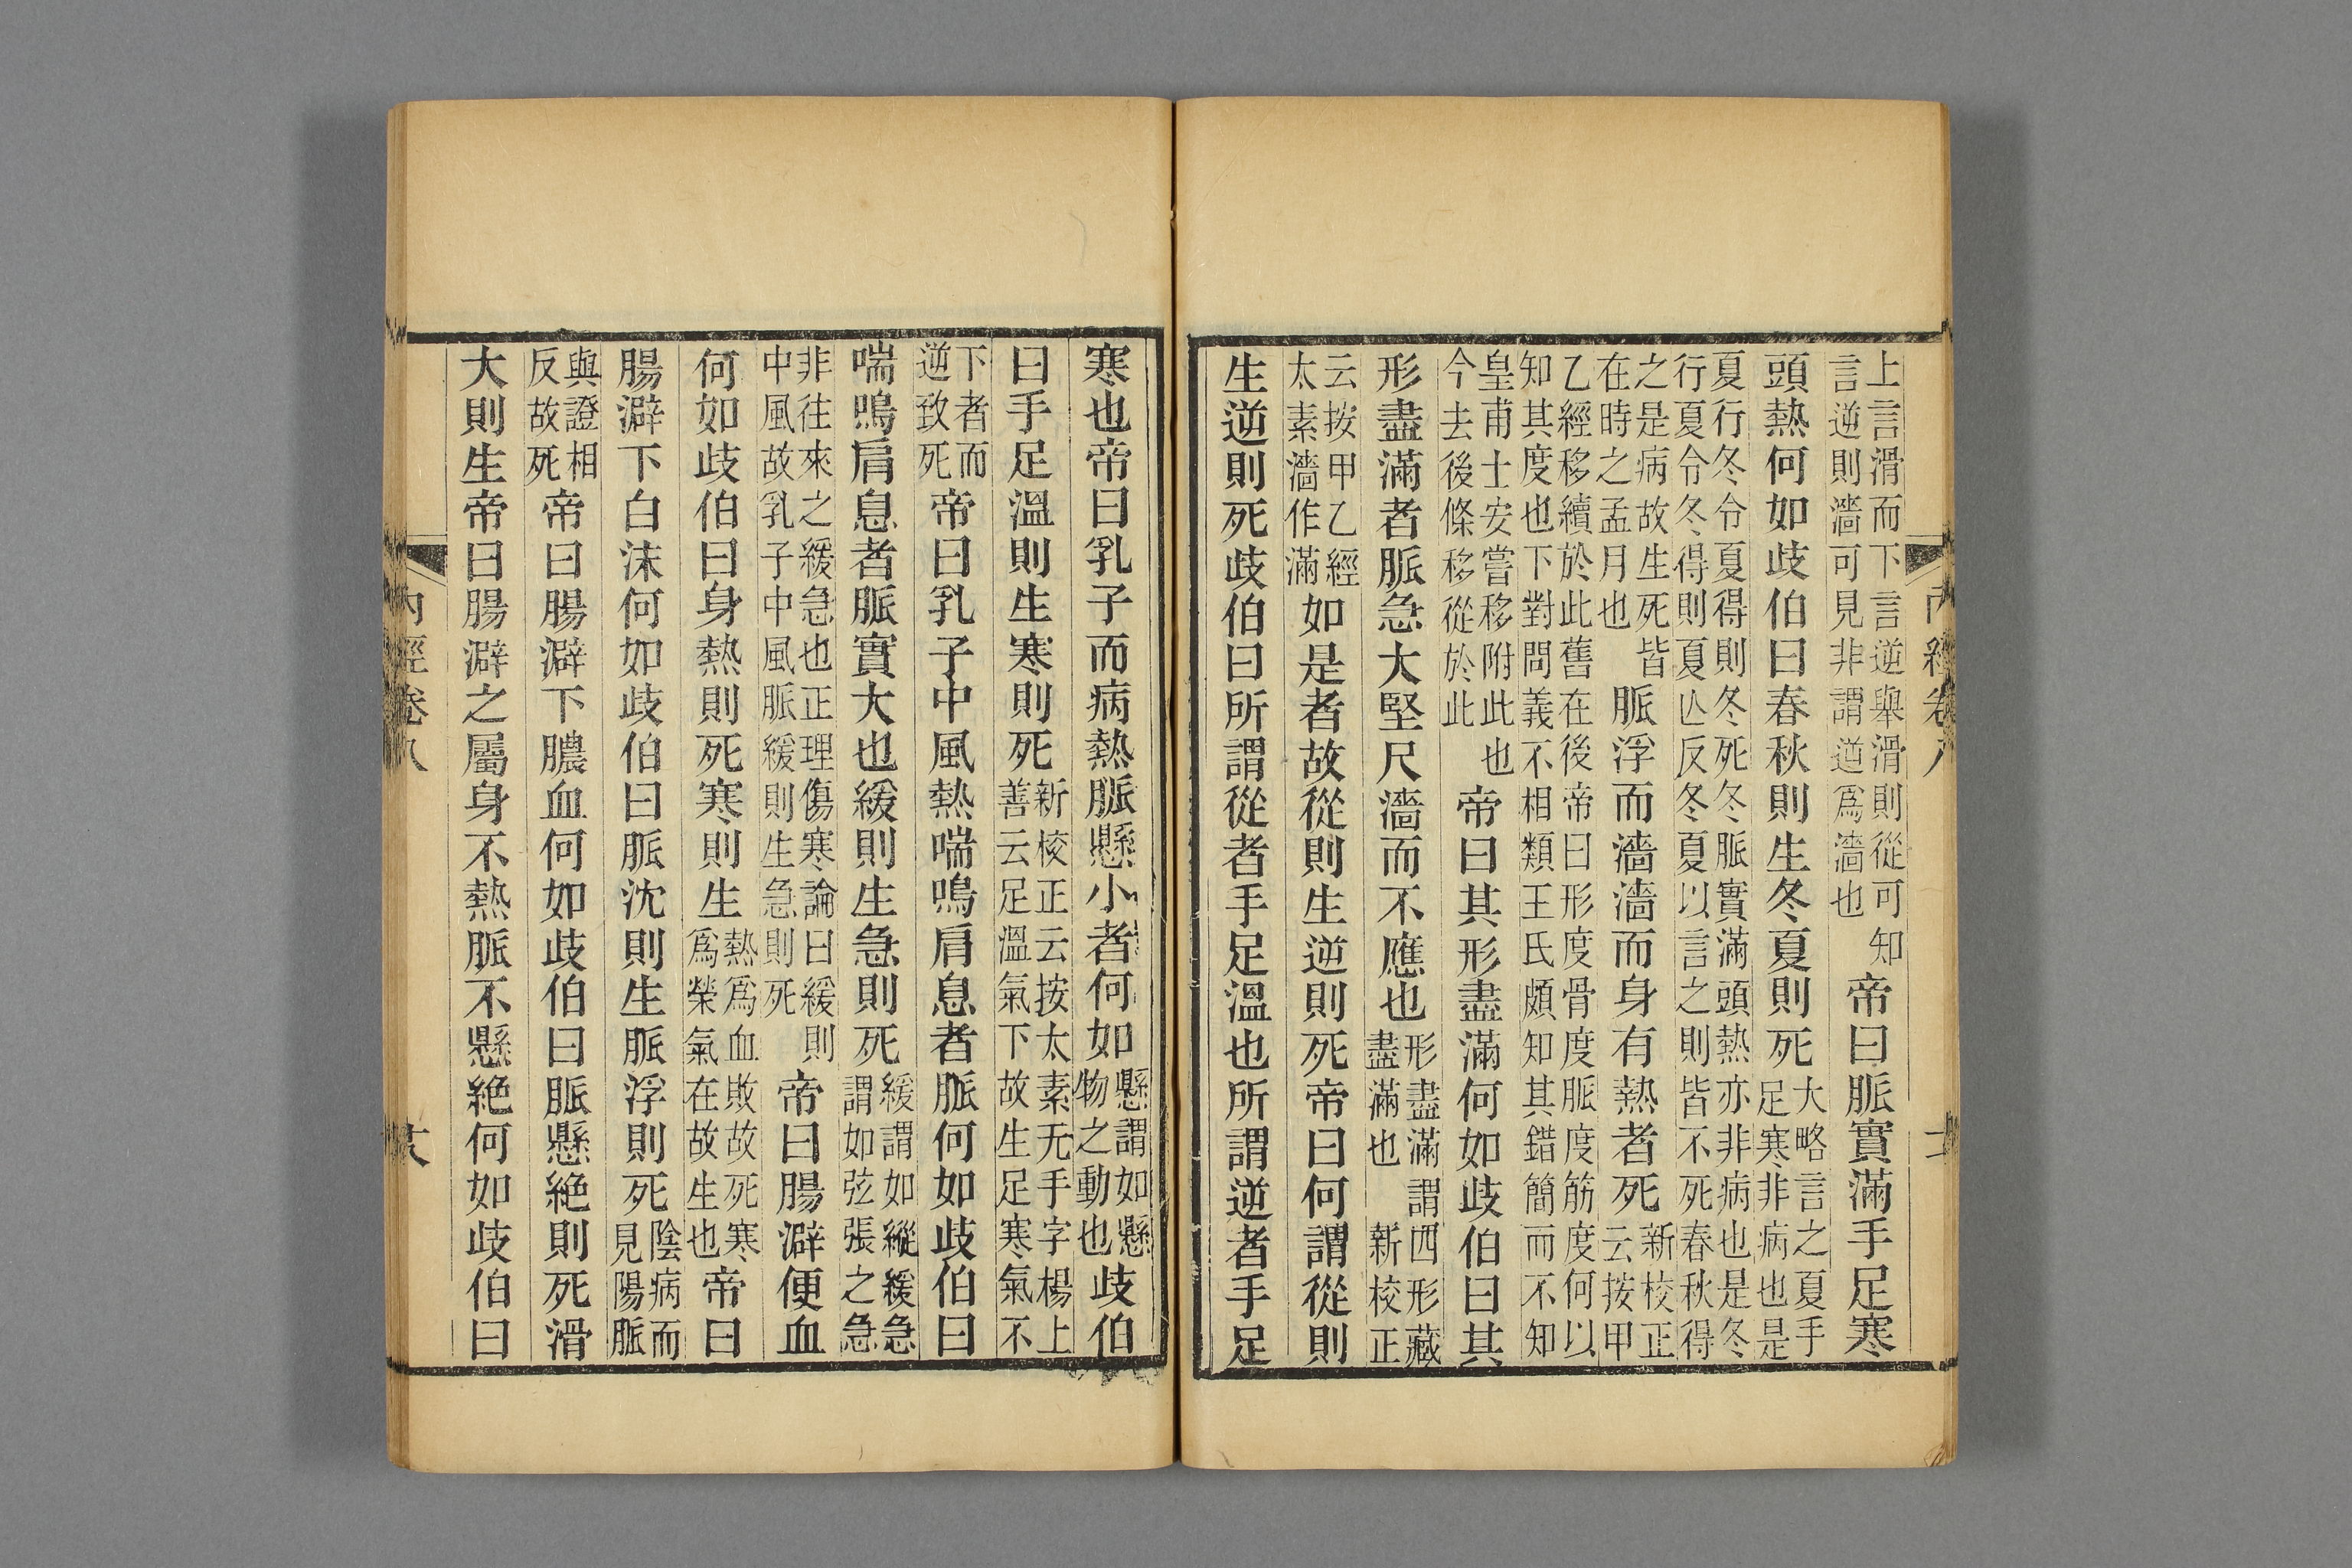 上言滑而下言逆舉滑則從可知言逆則濇可見非謂逆爲濇也帝曰脈實滿手足寒
頭熱何如歧伯曰春秋則生冬夏則死大略言之夏手足寒非病也是
夏行冬令夏得則冬死冬脈實滿頭熱亦非病也是冬行夏令冬得則夏亾反冬夏以言之則皆不死春秋得
之是病故生死皆在時之孟月也脈浮而濇濇而身有熱者死新校正云按甲
乙經移續於此舊在後帝曰形度骨度脈度筋度何以知其度也下對問義不相類王氏頗知其錯簡而不知
皇甫士安嘗移附此也今去後條移從於此帝曰其形盡滿何如歧伯曰其
形盡滿者脈急大堅尺濇而不應也形盡滿謂四形藏盡滿也 新校正
云按甲乙經太素濇作滿如是者故從則生逆則死帝曰何謂從則
生逆則死歧伯曰所謂從者手足溫也所謂逆者手足
寒也帝曰乳子而病熱脈懸小者何如懸謂如懸物之動也歧伯
曰手足溫則生寒則死新校正云按太素无手字楊上善云足溫氣下故生足寒氣不
下者而逆致死帝曰乳子中風熱喘鳴肩息者脈何如歧伯曰
喘鳴肩息者脈實大也緩則生急則死緩謂如縱緩急謂如弦張之急
非往來之緩急也正理傷寒論曰緩則中風故乳子中風脈緩則生急則死帝曰腸澼便血
何如歧伯曰身熱則死寒則生熱爲血敗故死寒爲榮氣在故生也帝曰
腸澼下白沫何如歧伯曰脈沈則生脈浮則死陰病而見陽脈
與證相反故死帝曰腸澼下膿血何如歧伯曰脈懸絶則死滑
大則生帝曰腸澼之屬身不熱脈不懸絶何如歧伯曰
內經卷八